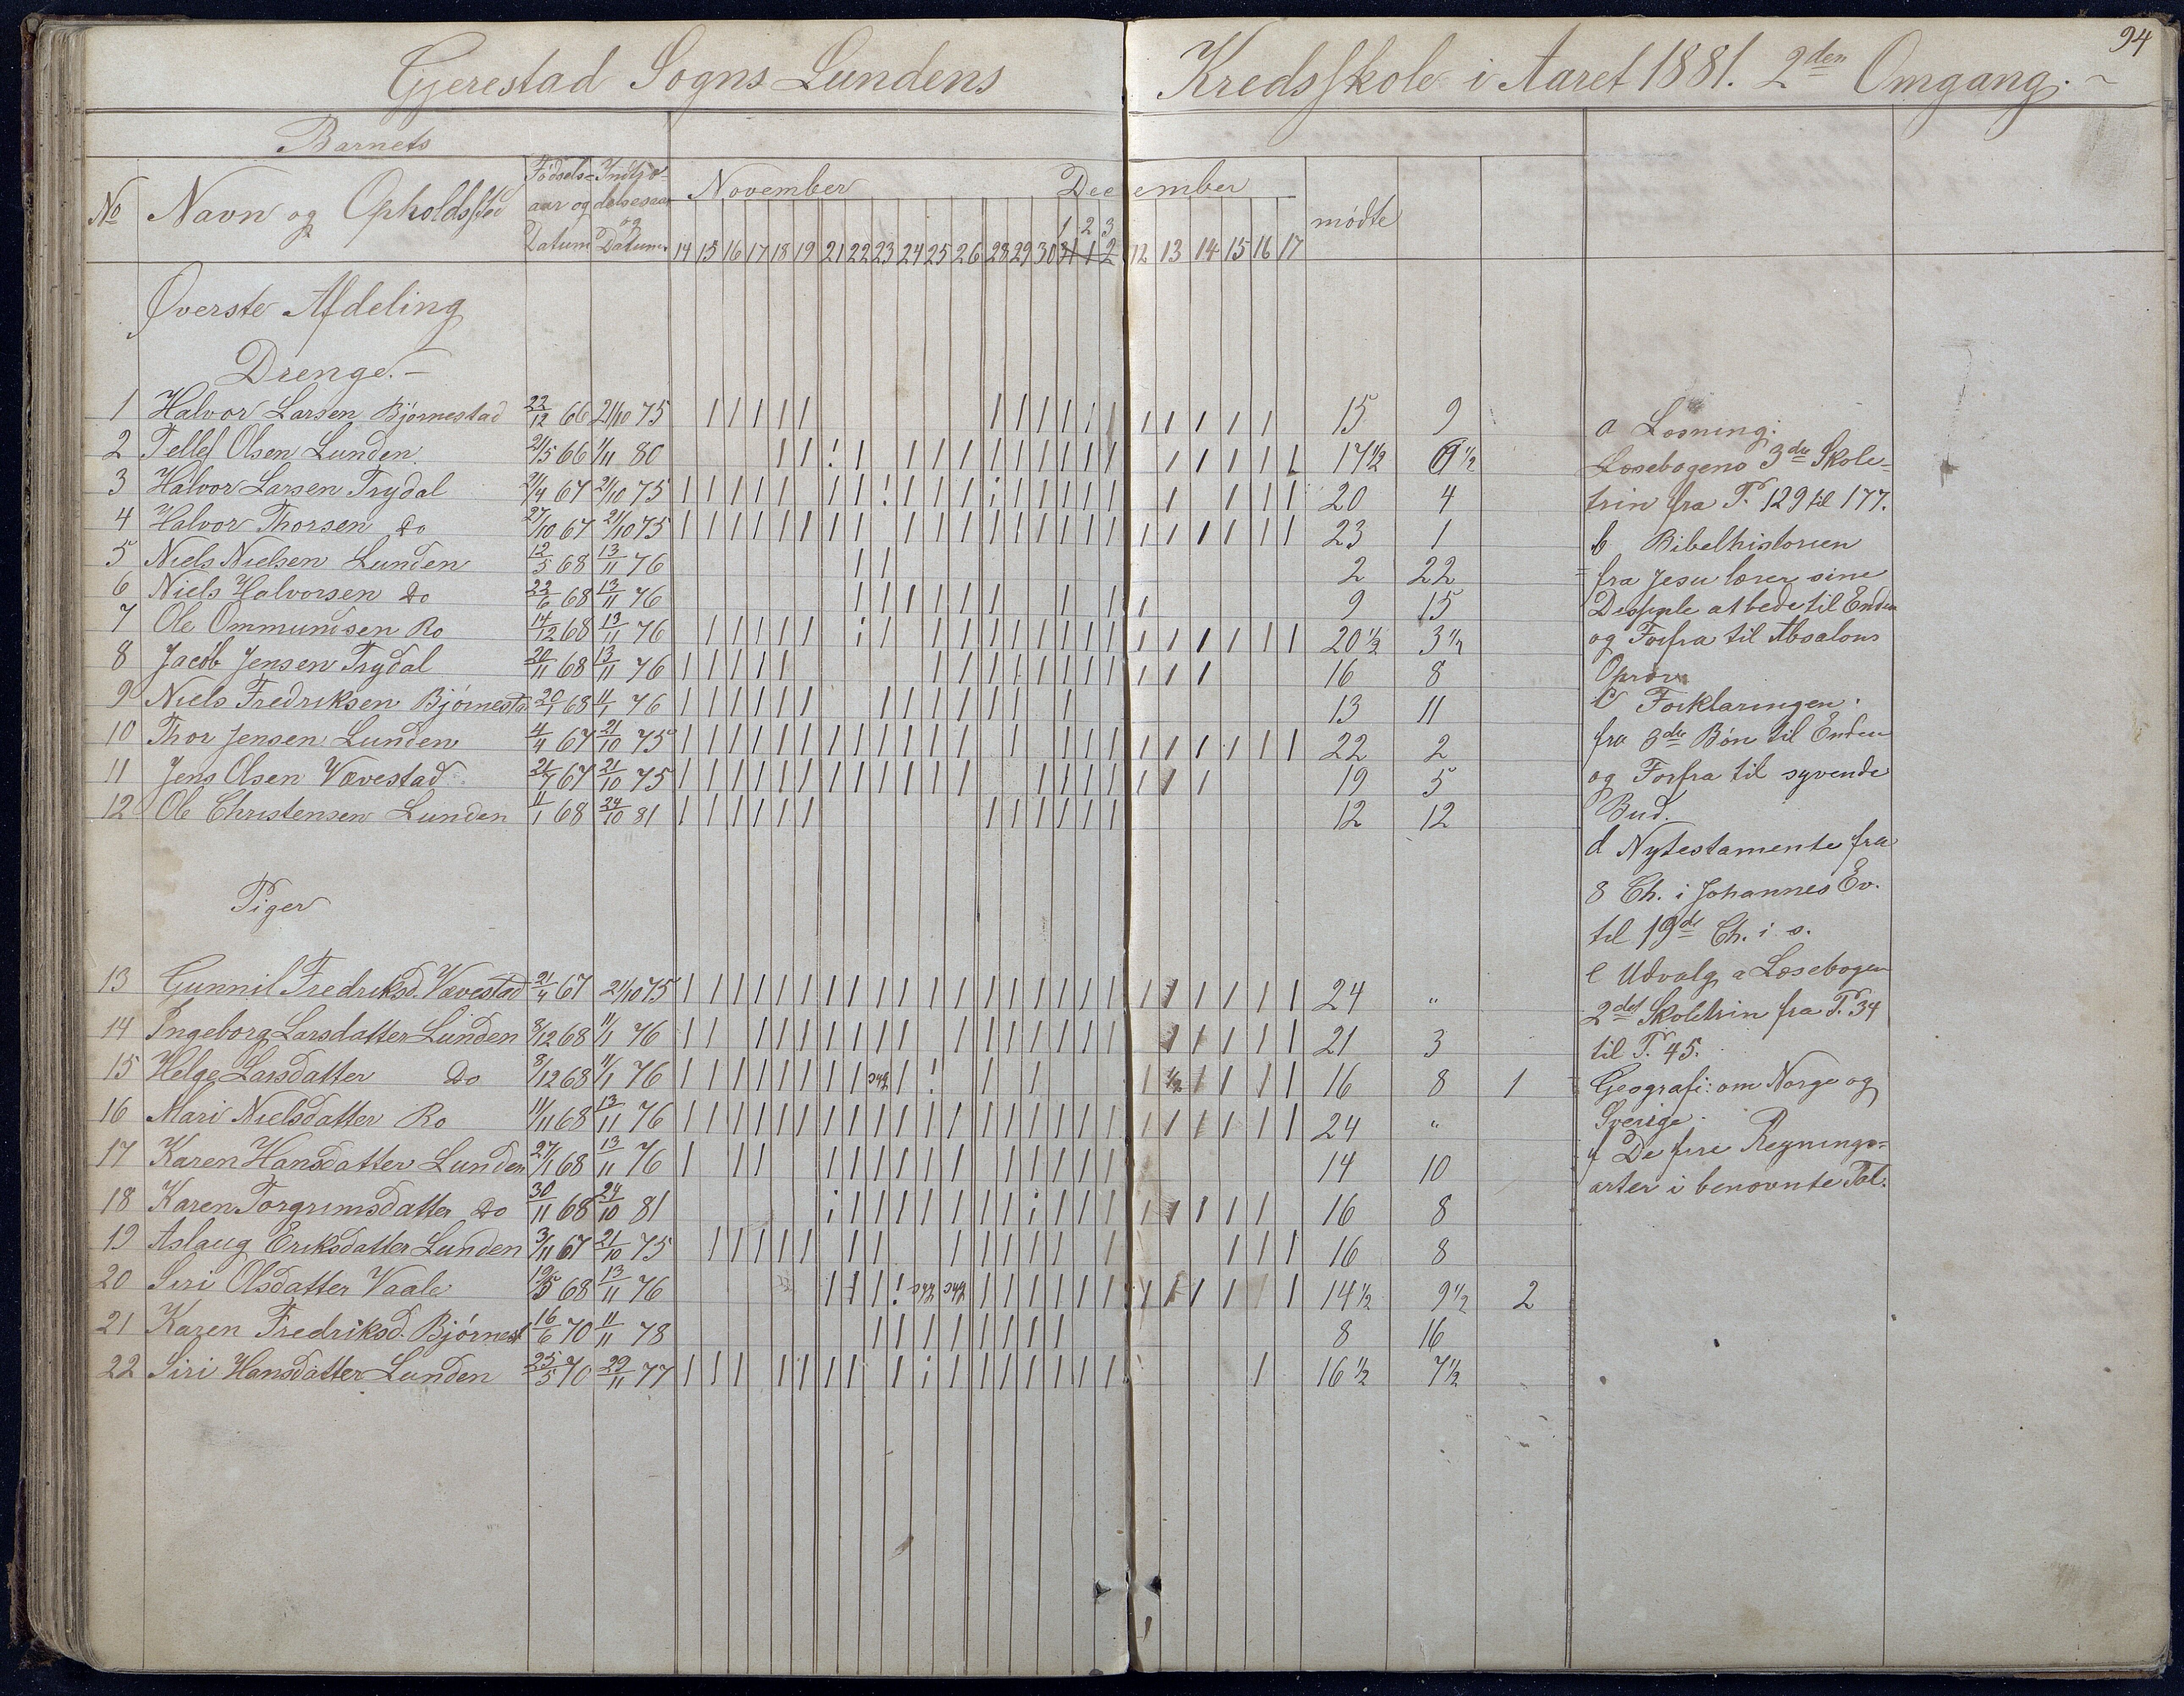 94
Gjerestad Sogns Lundens Kredsskole i Aaret 1881. 2den Omgang.
Barnets
No Navn og Opholdssted Fødsels-aar og Datum Indtjødelsesaar og Datum November December mødte
1 2 3
14 15 16 17 18 19 21 22 23 24 25 26 28 29 30 31 1 2 12 13 14 15 16 17
Øverste Afdeling
Drenge.
1 Halvor Larsen Bjørnestad 22/12 66 21/10 75 15 9
2 Tellef Olsen Lunden 21/5 66 1/11 80 17 1/2 6 1/2
3 Halvor Larsen Trydal 21/4 67 21/10 75 20 4
4 Halvor Thorsen Do 27/10 67 21/10 75 23 1
5 Niels Nielsen Lunden 12/5 68 13/11 76 2 22
6 Niels Halvorsen Do 22/6 68 13/11 76 9 15
7 Ole Ommundsen Ro 14/12 68 13/11 76 20 1/2 3 1/2
8 Jacob Jensen Trydal 20/11 68 13/11 76 16 8
9 Niels Fredriksen Bjørnesta 20/1 68 11/1 76 13 11
10 Thor Jensen Lunden 4/4 67 21/10 75 22 2
11 Jens Olsen Vævestad 21/7 67 21/10 75 19 5
12 Ole Christensen Lunden 11/1 68 24/10 81 12 12
Piger
13 Gunnil Fredriksd. Vævestad 21/4 67 21/10 75 24 "
14 Ingeborg Larsdatter Lunden 8/12 68 11/1 76 21 3
15 Helge Larsdatter Do 8/12 68 11/1 76 syk 1/2 16 8 1
16 Mari Nielsdatter Ro 11/11 68 13/11 76 24 "
17 Karen Hansdatter Lunden 27/1 68 13/11 76 14 10
18 Karen Torgrimsdatter Do 30/11 68 24/10 81 16 8
19 Aslaug Eriksdatter Lunden 3/11 67 21/10 75 16 8
20 Siri Olsdatter Vaale 19/5 68 13/11 76 syk syk 14 1/2 9 1/2 2
21 Karen Fredriksd. Bjørnest 16/6 70 11/11 78 8 16
22 Siri Hansdatter Lunden 25/5 70 29/11 77 16 1/2 7 1/2
a Læsning:
Læsebogens 3die Skole-
trin fra P. 129 til 177.
b Bibelhistorien
fra Jesu lærer sine
Disiple at bede til Enden
og Forfra til Absalons
Oprør
c Forklaringen:
fra 3die Bøn til Enden
og Forfra til syvende
Bud.
d Nytestamente fra
8 Ch. i Johannes Ev.
til 19de Ch. i s.
e Udvalg a Læsebogen
2det Skoletrin fra P. 34
til P. 45.
Geografi: om Norge og
Sverige.
f De fire Regnings-
arter i benævnte Tal.